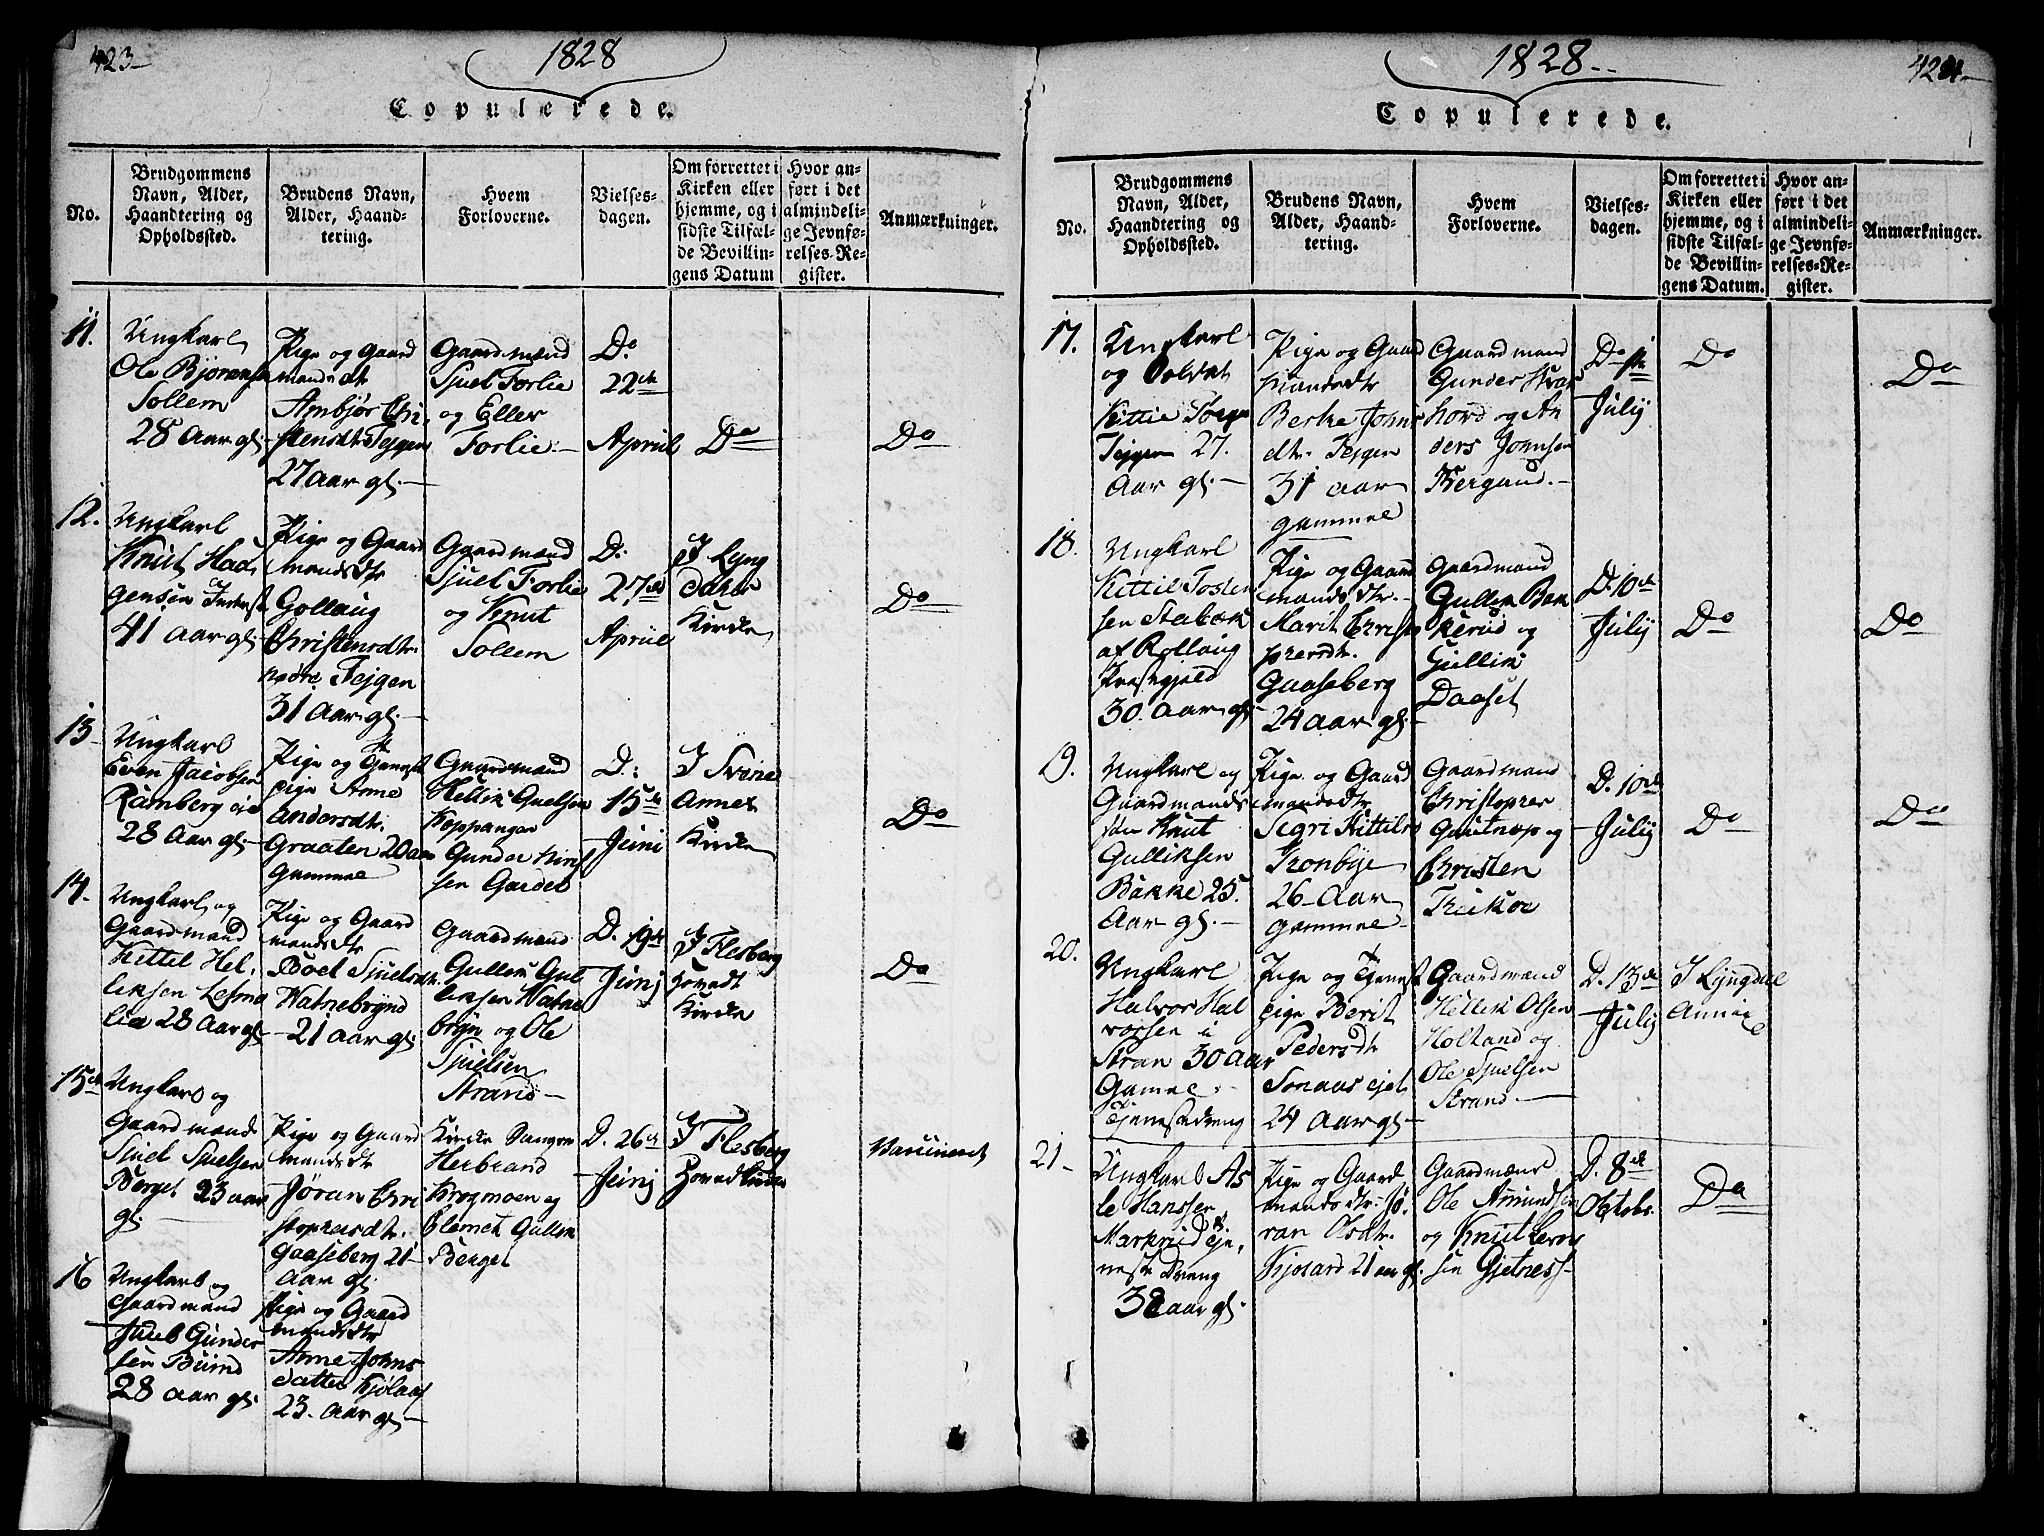 423
1828
Copulerede.
No.
Brudgommens
Navn, Alder,
Haandtering og
Opholdssted.
Brudens Navn,
Alder, Haand-
tering.
Hvem
Forloverne.
Vielses-
dagen.
Om forrettet i
Kirken eller
hjemme, og i
sidste Tilfæl-
de Bevillin-
gens Datum
Hvor an-
ført i det
almindeli-
ge Jevnfø-
relses-Re-
gister.
Anmærkninger.
11.
Ungkarl
Ole Bjørensen
Sollem
28 Aar gl.
Pige og Gaard
mands dt
Ambjør Chri
stensdt Tejgen
27 Aar gl.
Gaardmænd
Sjuel Forlie
og Eller
Forlie
Do
22de
Apriil
Do
Do
12.
Ungkarl
Knut Had
gensen
41 Aar gl.
Pige og Gaard
mands dtr
Gollaug
Christensdtr.
nedre Tejgen
31 Aar gl.
Gaardmænd
Sjuel Forlie
og Knut
Sollem
D.
27de
Apriil
I Lyng
dahls
Kirke
Do
13
Ungkarl
Even Jacobsen
Ramberg eie
28 Aar gl.
Pige og Tjenest
pige Anne
Andersdtr.
Graaten 20 aar
gammel
Gaardmænd
Hellik Guelsen
Koppangen
Gunder
sen Gardet
D.:
15de
Juni
I Svene
Annex
Kirke
Do
14.
Ungkarl og
Gaardmand
Kittel Hel
liksen Lesma
lia 28 Aar gl
Pige og Gaard
mands dtr
Boel Sjuelsdt.
Watnebrynd
21 aar gl.
Gaardmænd
Gullik Gul
liksen Watne
bryn og Ole
Sjuelsen
Strand
D. 19de
Junj
I Flesberg
Hovedt
Kirke
Do
15de
Ungkarl og
Gaardmand
Sjuel Sjuelsen
Berget 23 aar
gl.
Pige og Gaard
mands dtr
Jøran Chri
stophersdt.
Gaaseberg 21
Aar gl.
Kirke Sanger
Herbrand
Krogmoen og
Clemet Gullik
Berget
D. 26de
Junj
I Flesberg
Hovedkirke
Vaccineret
16
Ungkarl og
Gaardmand
Juel Gunder
sen Buind
28 Aar gl.
Pige og Gaard
mands dtr
Anne Johns
datter Kjølaas
23. Aar gl.
424
1828
Copulerede.
No.
Brudgommens
Navn, Alder,
Haandtering og
Opholdssted.
Brudens Navn,
Alder, Haand-
tering.
Hvem
Forloverne.
Vielses-
dagen.
Om forrettet i
Kirken eller
hjemme, og i
sidste Tilfæl-
de Bevillin-
gens Datum.
Hvor an-
ført i det
almindeli-
ge Jevnfø-
relses-Re-
gister.
Anmærkninger.
17.
Ungkarl
og Soldat
Kittil
Tejgen 27.
Aar gl.
Pige og Gaard
mands dtr
Berthe Johns
dtr. Tejgen
31 aar
gammel
Gaardmænd
Gunder
og An
ders Johnsen
Bergaud.
Do
July
Do
Do
18.
Ungkarl
Kittil Tosten
sen Stabæk
af Rollaug
Præstegjeld
30. Aar gl.
Pige og Gaard
mands dtr.
Marit Christo
phersdtr.
Gaaseberg
24 aar gl.
Gaardmænd
Gullik Bak
kerud og
Gullik
Daaset
D. 10de
July
Do
Do
19.
Ungkarl og
Gaardmands
søn Knut
Gulliksen
Bakke 25.
Aar gl.
Pige og Gaard
mands dtr
Segri Kittils
Tronbye
26 Aar
gammel
Gaardmænd
Christopher
Gaptnep og
Christen
D. 10de
July
Do
Do
20.
Ungkarl
Halvor Hal
vorsen
Stran 30 Aar
Gamle
Tjenestedreng
Pige og Tjenest
pige Berit
Pedersdt
Sonaas ejet
24 Aar gl.
Gaardmænd
Hellik Olsen
Holtand og
Ole Sjuelsen
Strand
D. 13de
July
I Lyngdal
Annex
21
Ungkarl As
le Hanssen
Markrud ej,
neste Dreng
38 aar gl.
Pige og Gaard
mands dtr. Jø
ran Olsdtr.
Kjosard 21 aar gl.
Gaardmænd
Ole Amundsen
og Knut
sen Gjetness
D. 8de
Octobr.
Do